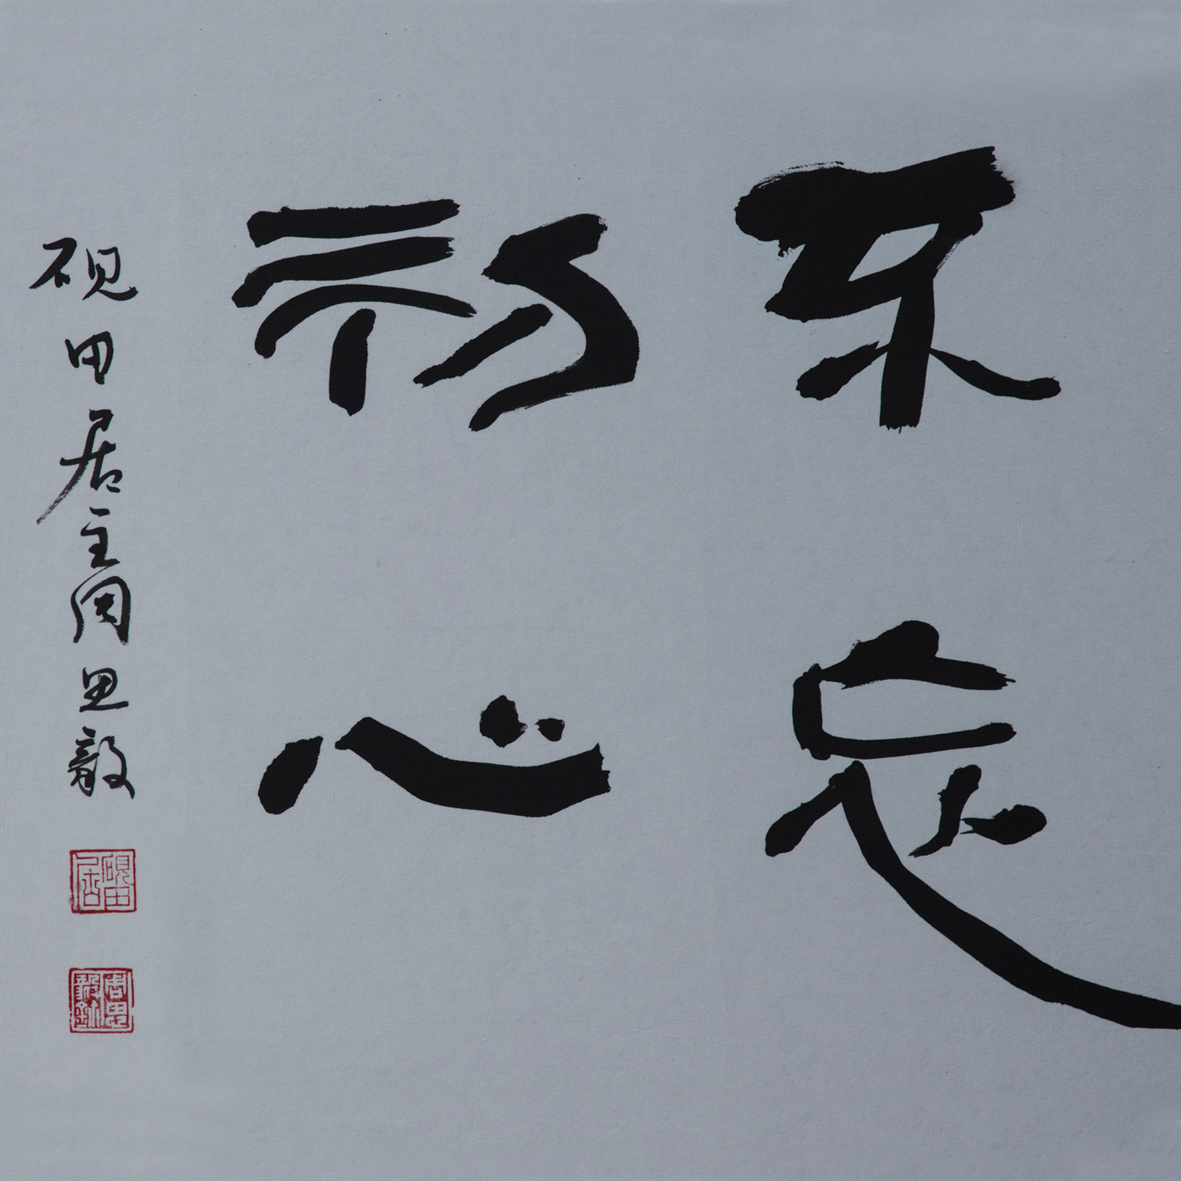 不忘
初心
砚田居主周思毅
砚田居
周思毅鉨